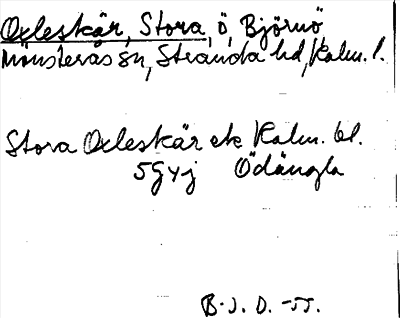 Oxleskär, Stora, ö, Björnö
Mönsterås sn, Stranda hd, Kalm. l.
Stora Oxleskär ek Kalm. bl.
5G4j Ödängla
B.J.D. -55.